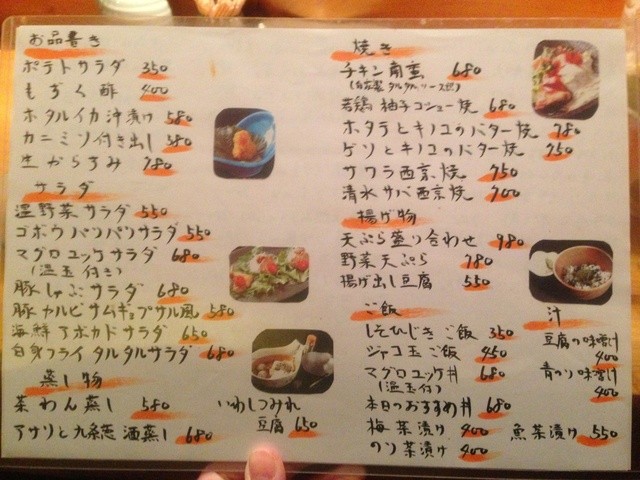 お品書き
ポテトサラダ 350
もずく酢 400
ホタルイカ沖漬け 580
カニミソ付き出し 380
生からすみ 780
サラダ
温野菜サラダ 550
ゴボウパリパリサラダ 550
マグロユッケサラダ 680
(温玉付き)
豚しゃぶサラダ 680
豚カルビサムギョプサル風 580
海鮮アボカドサラダ 650
白身フライタルタルサラダ 680
蒸し物
茶わん蒸し 580
アサリと九条葱酒蒸し 680
いわしつみれ
豆腐 650
焼き
チキン南蛮 680
(自家製タルタルソース)
若鶏柚子コショー焼 680
ホタテとキノコのバター焼 780
ゲソとキノコのバター焼 750
サワラ西京焼 750
清水サバ西京焼 700
揚げ物
天ぷら盛り合わせ 980
野菜天ぷら 780
揚げ出し豆腐 550
ご飯
しそひじきご飯 350
ジャコ玉ご飯 450
マグロユッケ丼 680
(温玉付)
本日のおすすめ丼 680
梅茶漬け 400
のり茶漬け 400
汁
豆腐の味噌汁
400
青のり味噌汁
400
魚茶漬け 550